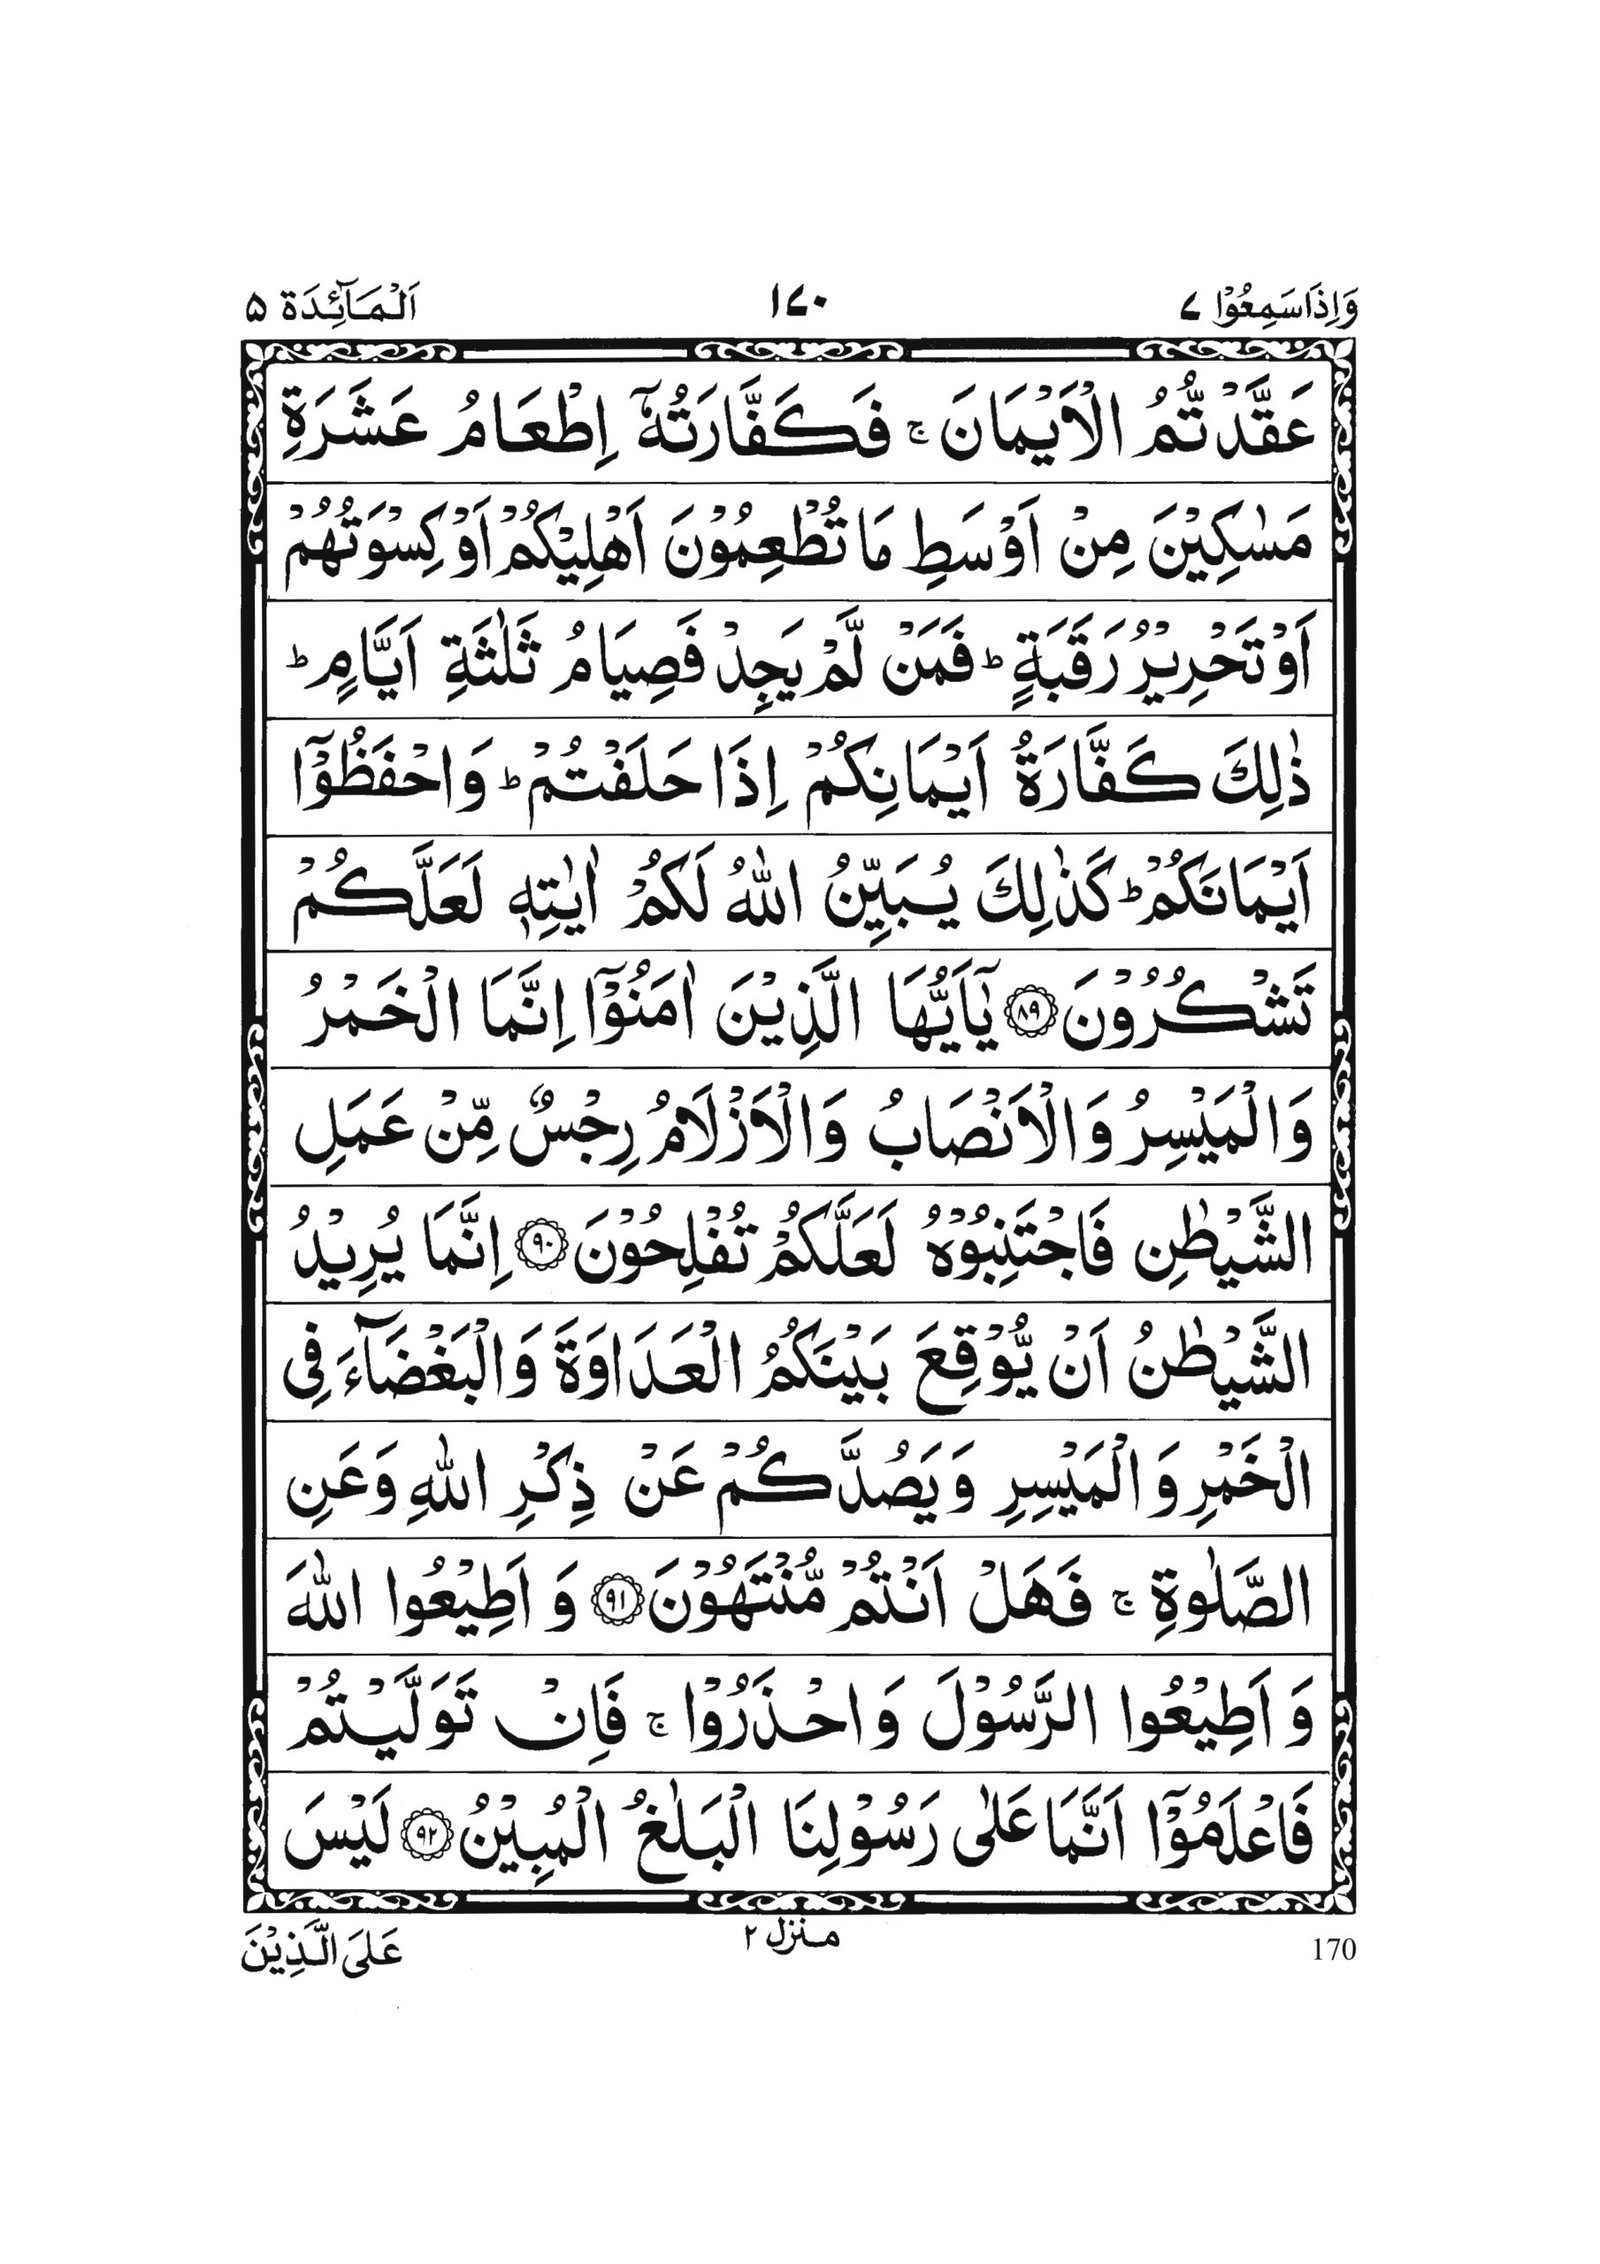 وَاِذَا سَمِعُوْا ۷ ۱۷۰ اَلْمَآئِدَة ۵
عَقَّدْتُّمُ الْاَيْمَانَ ۚ فَكَفَّارَتُهٗۤ اِطْعَامُ عَشَرَةِ
مَسٰكِيْنَ مِنْ اَوْسَطِ مَا تُطْعِمُوْنَ اَهْلِيْكُمْ اَوْ كِسْوَتُهُمْ
اَوْ تَحْرِيْرُ رَقَبَةٍ ؕ فَمَنْ لَّمْ يَجِدْ فَصِيَامُ ثَلٰثَةِ اَيَّامٍ ؕ
ذٰلِكَ كَفَّارَةُ اَيْمَانِكُمْ اِذَا حَلَفْتُمْ ؕ وَاحْفَظُوْۤا
اَيْمَانَكُمْ ؕ كَذٰلِكَ يُبَيِّنُ اللّٰهُ لَكُمْ اٰيٰتِهٖ لَعَلَّكُمْ
تَشْكُرُوْنَ ۸۹ يٰۤاَيُّهَا الَّذِيْنَ اٰمَنُوْۤا اِنَّمَا الْخَمْرُ
وَالْمَيْسِرُ وَالْاَنْصَابُ وَالْاَزْلَامُ رِجْسٌ مِّنْ عَمَلِ
الشَّيْطٰنِ فَاجْتَنِبُوْهُ لَعَلَّكُمْ تُفْلِحُوْنَ ۹۰ اِنَّمَا يُرِيْدُ
الشَّيْطٰنُ اَنْ يُّوْقِعَ بَيْنَكُمُ الْعَدَاوَةَ وَالْبَغْضَآءَ فِى
الْخَمْرِ وَالْمَيْسِرِ وَيَصُدَّكُمْ عَنْ ذِكْرِ اللّٰهِ وَعَنِ
الصَّلٰوةِ ۚ فَهَلْ اَنْتُمْ مُّنْتَهُوْنَ ۹۱ وَاَطِيْعُوا اللّٰهَ
وَاَطِيْعُوا الرَّسُوْلَ وَاحْذَرُوْا ۚ فَاِنْ تَوَلَّيْتُمْ
فَاعْلَمُوْۤا اَنَّمَا عَلٰى رَسُوْلِنَا الْبَلٰغُ الْمُبِيْنُ ۹۲ لَيْسَ
170 منزل ۲ عَلَى الَّذِيْنَ